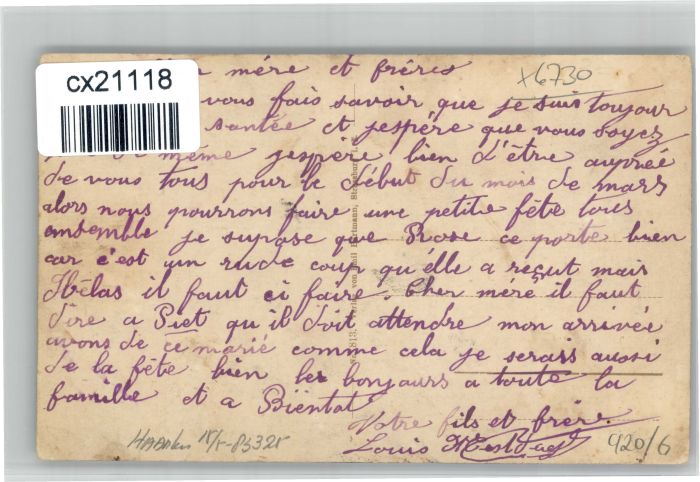 cx21118
x6730
mére et fréres
vous fais savoir que je suis toujour
santée et jespére que vous soyez
de même jespère bien d'être auprée
de vous tous pour le début du mois de mars
alors nous pourrons faire une petite fête tous
ensemble je supose que Rose ce porte bien
car c'est un rude coup qu'élle a reçut mais
Hélas il faut ci faire. Cher mére il faut
dire a Piet qu'il doit attendre mon arrivée
avons de ce marié comme cela je serais aussi
de la fête bien les bonjours a toute la
famille et a Biëntot
Votre fils et frère.
Louis
420/6